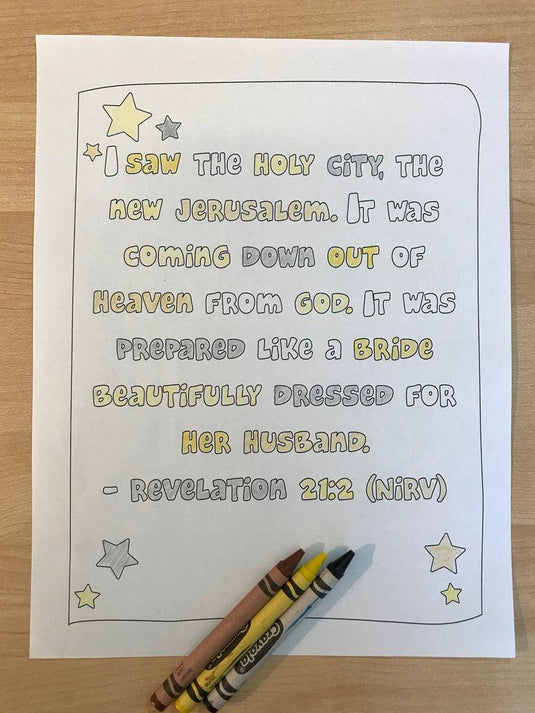 I saw the Holy City, the
new Jerusalem. It was
coming down out of
heaven from God. It was
prepared like a bride
beautifully dressed for
her husband.
- Revelation 21:2 (NIRV)
Crayola
Crayola